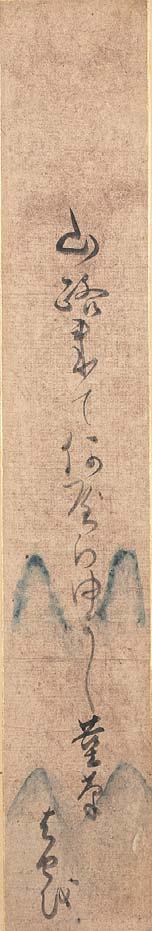 山路来て何やらゆかし菫草
はせを